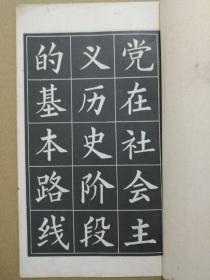 党在社会主
义历史阶段
的基本路线